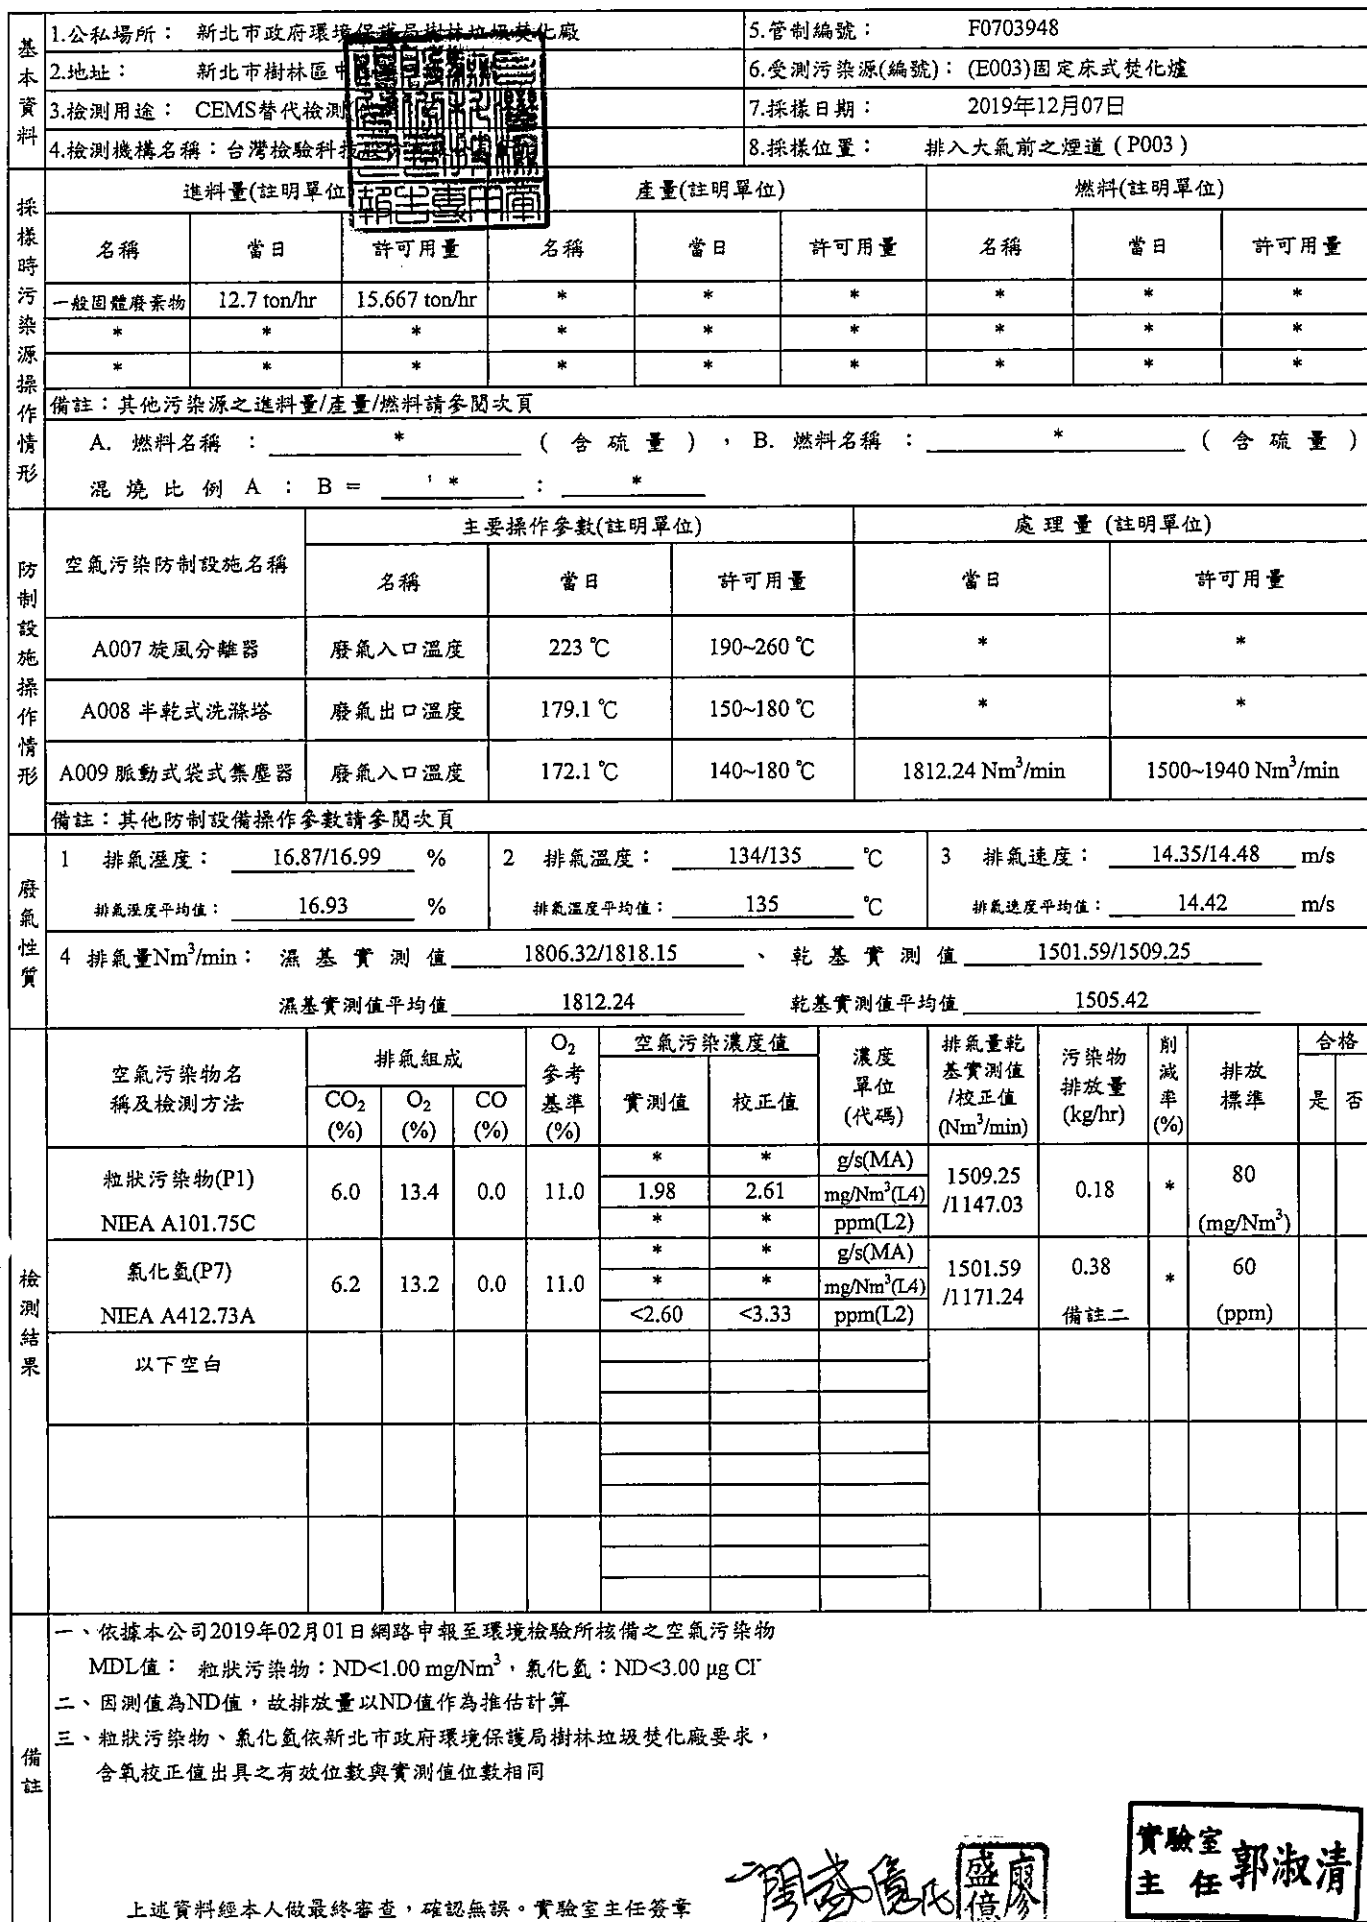 基本資料
1.公私場所： 新北市政府環境保護局樹林垃圾焚化廠 5.管制編號： F0703948
2.地址： 新北市樹林區 6.受測污染源(編號)： (E003)固定床式焚化爐
3.檢測用途： CEMS替代檢測 7.採樣日期： 2019年12月07日
4.檢測機構名稱：台灣檢驗科技 8.採樣位置： 排入大氣前之煙道（P003）
採樣時污染源操作情形
進料量(註明單位 產量(註明單位) 燃料(註明單位)
名稱 當日 許可用量 名稱 當日 許可用量 名稱 當日 許可用量
一般固體廢棄物 12.7 ton/hr 15.667 ton/hr * * * * * *
* * * * * * * * *
* * * * * * * * *
備註：其他污染源之進料量/產量/燃料請參閱次頁
A. 燃料名稱 ： * （ 含 硫 量 ） ， B. 燃料名稱 ： * （ 含 硫 量 ）
混 燒 比 例 A ： B = * ： *
防制設施操作情形
空氣污染防制設施名稱 主要操作參數(註明單位) 處 理 量 (註明單位)
名稱 當日 許可用量 當日 許可用量
A007 旋風分離器 廢氣入口溫度 223 ℃ 190~260 ℃ * *
A008 半乾式洗滌塔 廢氣出口溫度 179.1 ℃ 150~180 ℃ * *
A009 脈動式袋式集塵器 廢氣入口溫度 172.1 ℃ 140~180 ℃ 1812.24 Nm³/min 1500~1940 Nm³/min
備註：其他防制設備操作參數請參閱次頁
廢氣性質
1 排氣溼度： 16.87/16.99 % 2 排氣溫度： 134/135 ℃ 3 排氣速度： 14.35/14.48 m/s
排氣溼度平均值： 16.93 % 排氣溫度平均值： 135 ℃ 排氣速度平均值： 14.42 m/s
4 排氣量Nm³/min： 濕 基 實 測 值 1806.32/1818.15 、 乾 基 實 測 值 1501.59/1509.25
濕基實測值平均值 1812.24 乾基實測值平均值 1505.42
檢測結果
空氣污染物名稱及檢測方法 排氣組成 O₂參考基準(%) 空氣污染濃度值 濃度單位(代碼) 排氣量乾基實測值/校正值(Nm³/min) 污染物排放量(kg/hr) 削減率(%) 排放標準 合格
CO₂(%) O₂(%) CO(%) 實測值 校正值 是 否
粒狀污染物(P1) NIEA A101.75C 6.0 13.4 0.0 11.0 * * g/s(MA) 1509.25/1147.03 0.18 * 80 (mg/Nm³)
1.98 2.61 mg/Nm³(L4)
* * ppm(L2)
氯化氫(P7) NIEA A412.73A 6.2 13.2 0.0 11.0 * * g/s(MA) 1501.59/1171.24 0.38 備註二 * 60 (ppm)
* * mg/Nm³(L4)
<2.60 <3.33 ppm(L2)
以下空白
備註
一、依據本公司2019年02月01日網路申報至環境檢驗所核備之空氣污染物
MDL值： 粒狀污染物：ND<1.00 mg/Nm³，氯化氫：ND<3.00 μg Cl⁻
二、因測值為ND值，故排放量以ND值作為推估計算
三、粒狀污染物、氯化氫依新北市政府環境保護局樹林垃圾焚化廠要求，
含氧校正值出具之有效位數與實測值位數相同
實驗室主任 郭淑清
上述資料經本人做最終審查，確認無誤。實驗室主任簽章
廖盛億